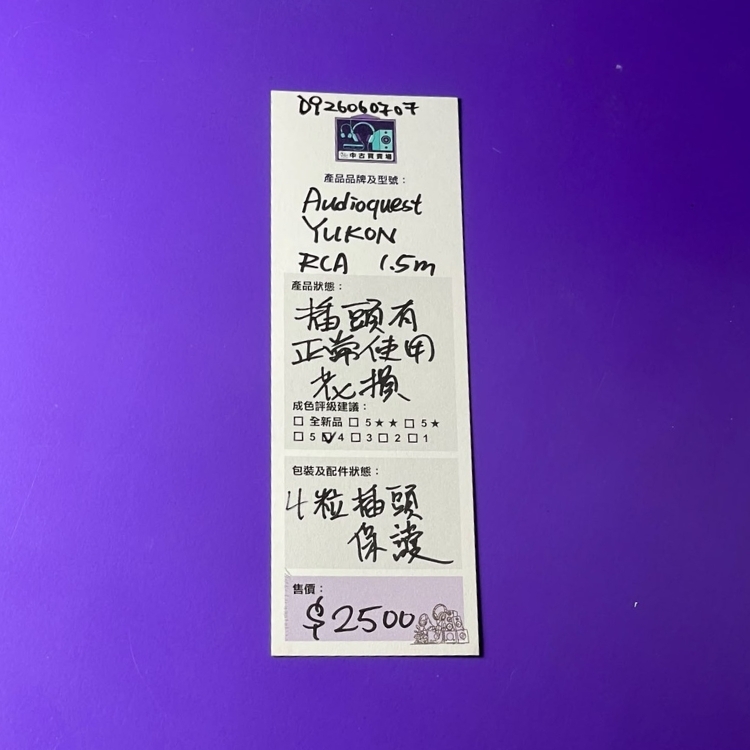 D926060707
中古買賣場
產品品牌及型號：
Audioquest
YUKON
RCA 1.5m
產品狀態：
插頭有
正常使用
花損
成色評級建議：
☐ 全新品 ☐ 5★★ ☐ 5★
☐ 5 ☑ 4 ☐ 3 ☐ 2 ☐ 1
包裝及配件狀態：
4粒插頭
保護
售價：
$2500